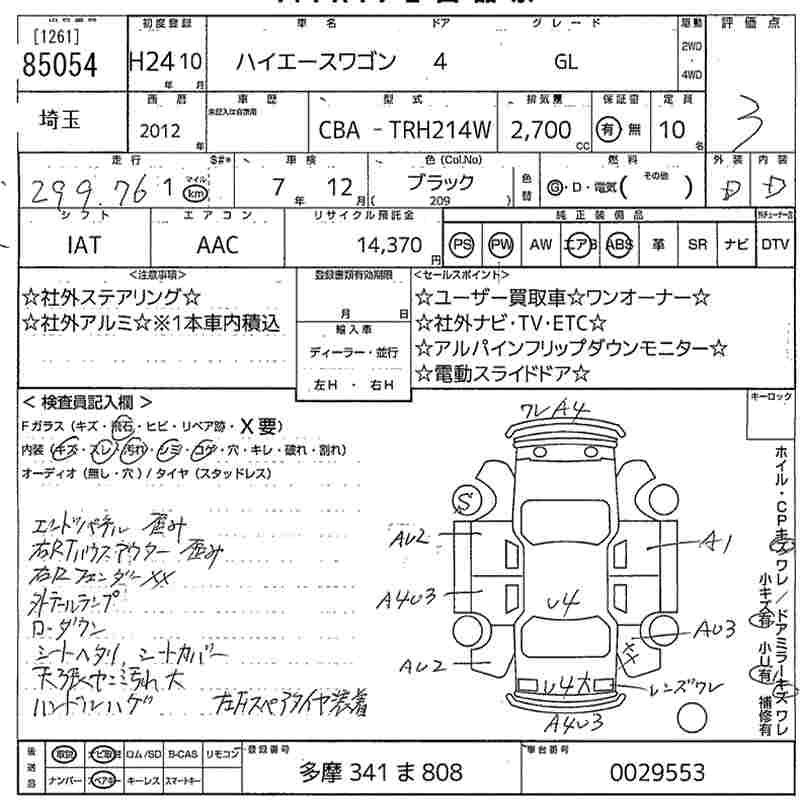 [1261]
85054
初度登録 車名 ドア グレード 駆動 評価点
H24 10 ハイエースワゴン 4 GL 2WD・4WD
年 月
埼玉
西暦 車歴 型式 排気量 保証書 定員
未記入は自家用
2012 CBA - TRH214W 2,700 CC 有 無 10 名
3
走行 S#* 車検 色(Col.No) 燃料 外装 内装
299.761 マイル km 7 年 12 月 ブラック 色替 G・D・電気( その他 ) D D
( 209 )
シフト エアコン リサイクル預託金 純正装備品
IAT AAC 14,370 円 PS PW AW エアB ABS 革 SR ナビ DTV
<注意事項> 登録書類有効期限 <セールスポイント>
☆社外ステアリング☆
☆社外アルミ☆※1本車内積込
月 日
輸入車
ディーラー・並行
左H ・ 右H
☆ユーザー買取車☆ワンオーナー☆
☆社外ナビ・TV・ETC☆
☆アルパインフリップダウンモニター☆
☆電動スライドドア☆
< 検査員記入欄 >
Fガラス(キズ・飛石・ヒビ・リペア跡・X要)
内装(キズ・スレ・汚れ・シミ・コゲ・穴・キレ・破れ・割れ)
オーディオ(無し・穴)/タイヤ(スタッドレス)
エンドパネル 歪み
右Rフェンダー XX
外テールランプ
ローダウン
シートヘタリ、シートカバー
ハンドルハゲ
スペアタイヤ装着
キーロック
ワレA4
S
AU2
A1
A4U3
U4
AU3
XX
AU2
U4大
レンズワレ
A4U3
ホイル・CPキズワレ/ドアミラーキズワレ
小キズ有 小U有 補修有
後送品 取説 ナビ取説 ロム/SD B-CAS リモコン
ナンバー スペアキー キーレス スマートキー
登録番号
多摩 341 ま 808
車台番号
0029553